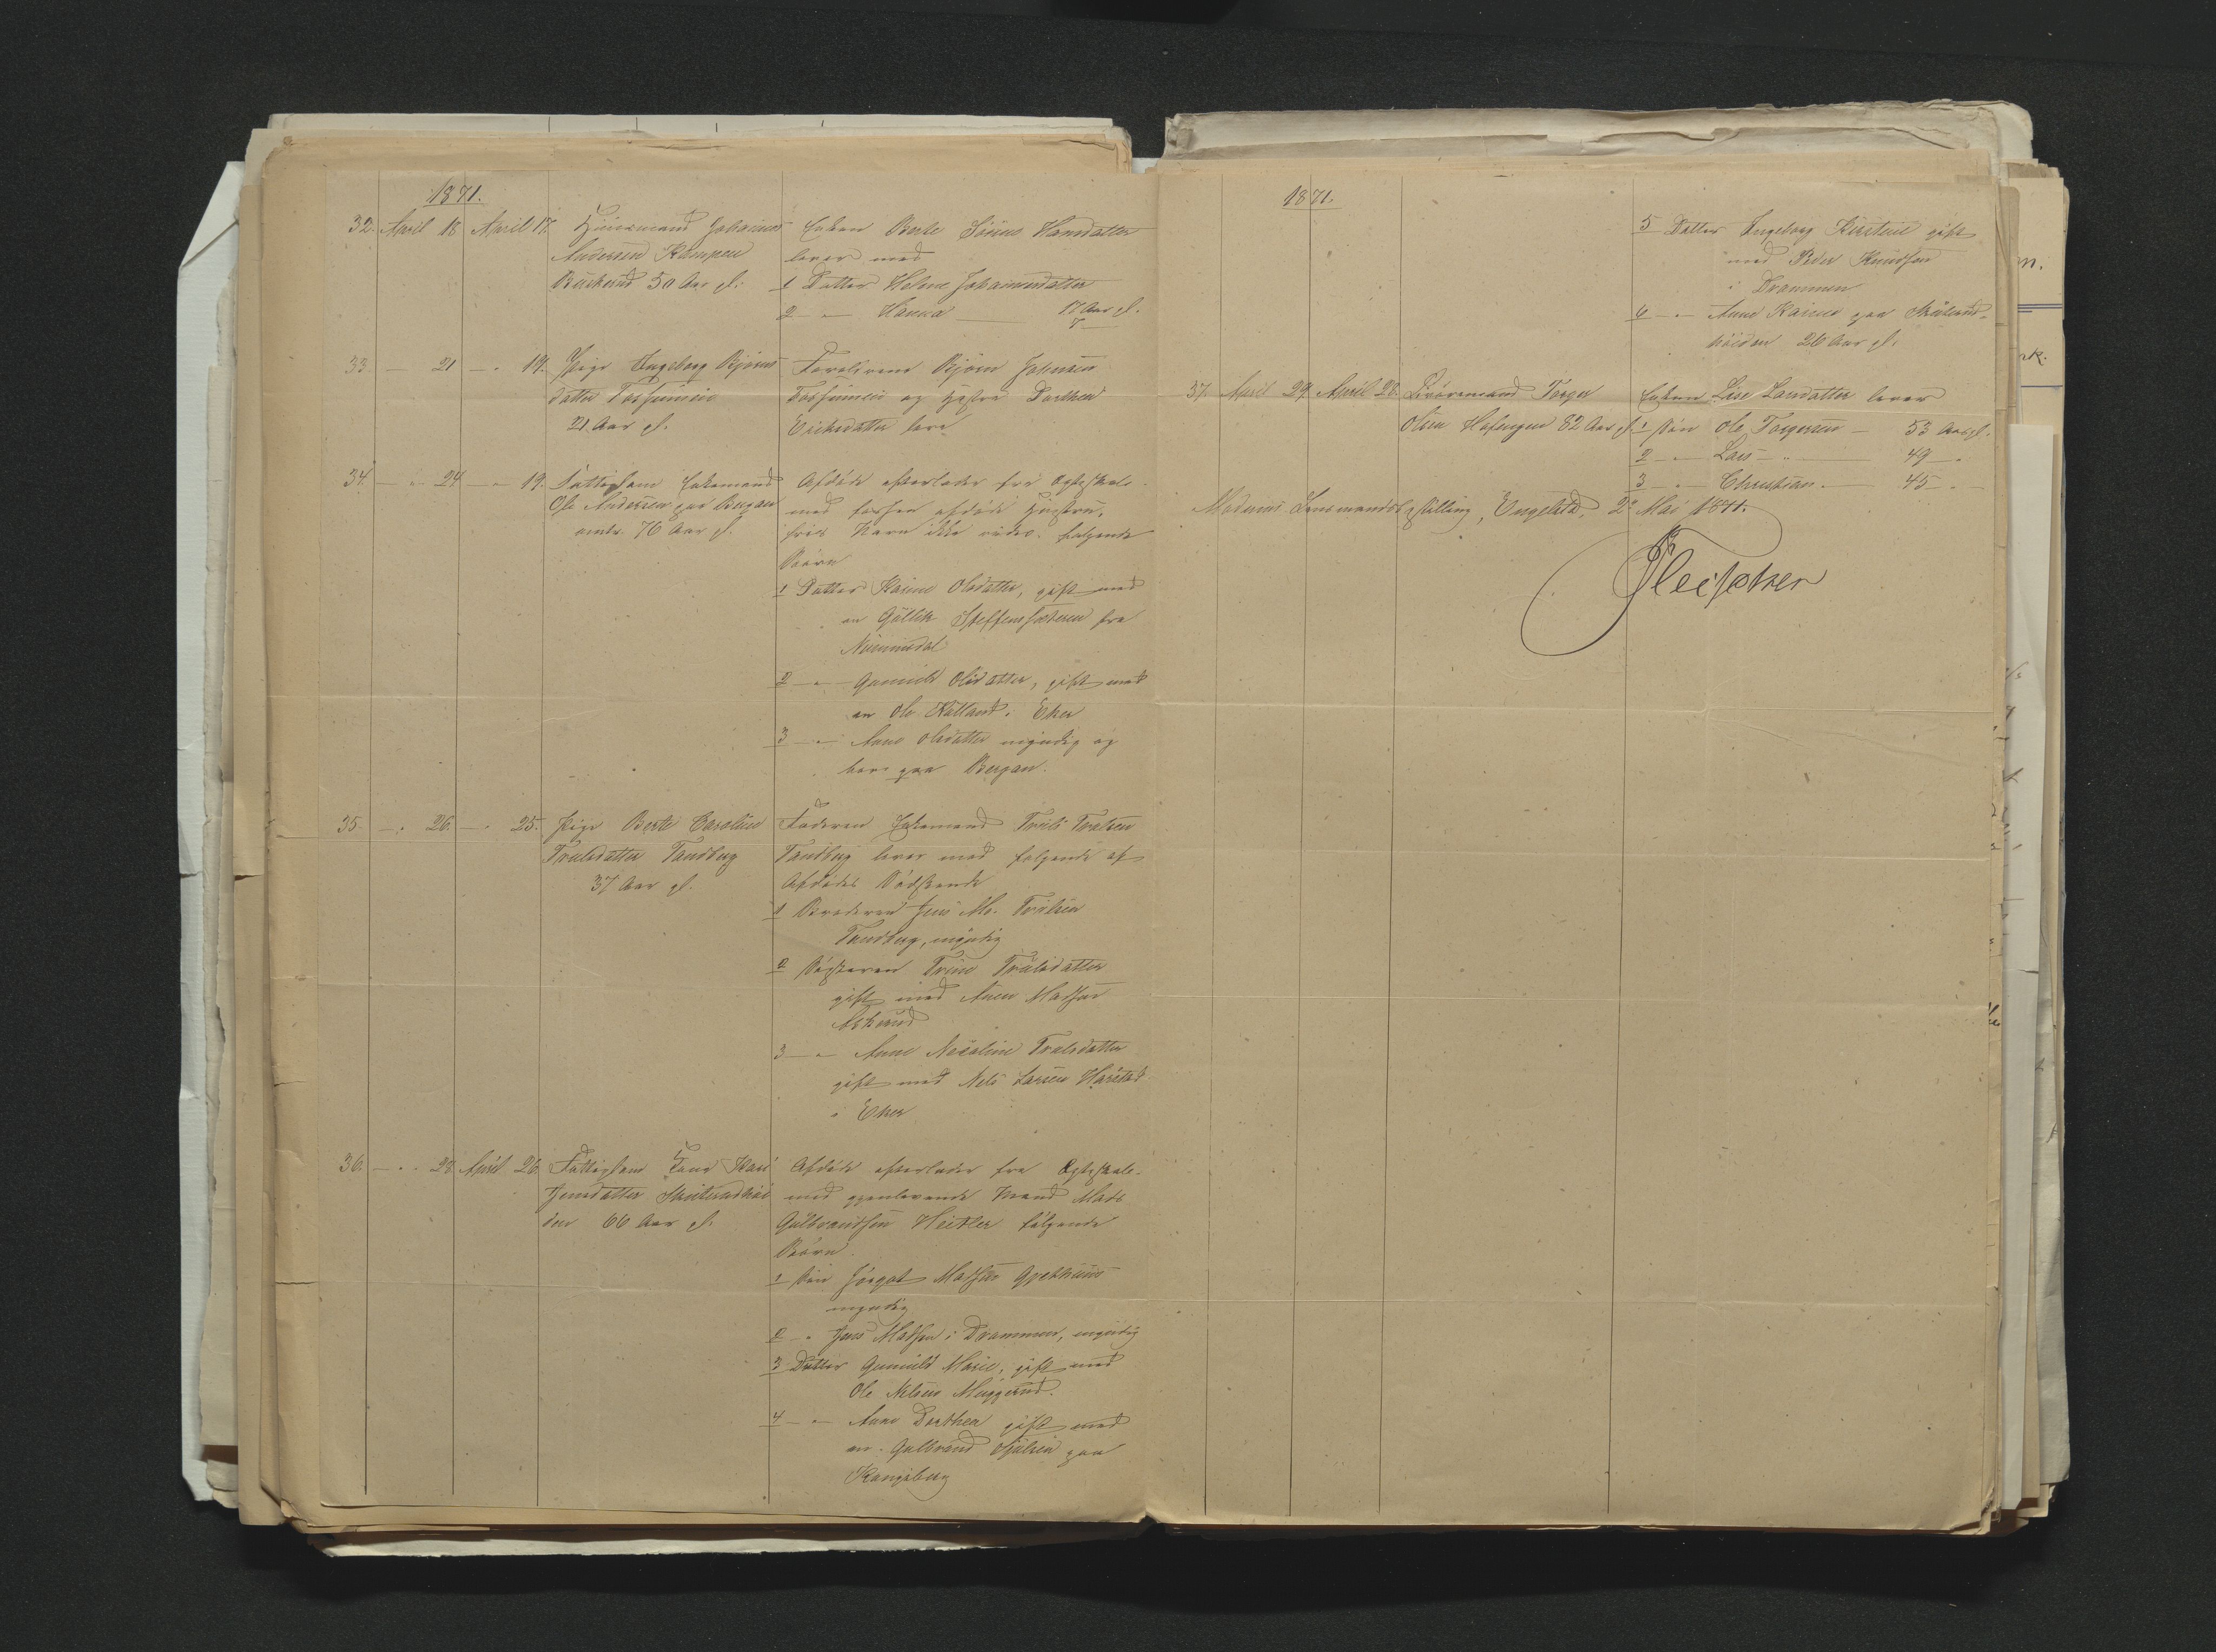 1871.
32. April 18 April 17. Huusmand Johannes
Andersen Kampen
Buskerud 50 Aar gl.
Enken Berte Sørine Hansdatter
lever med
1 Datter Helene Johannesdatter
2 — " — Hanna — 17 Aar gl.
7 —
33 — 21 — " 19. Pige Ingeborg Bjørns
datter Fossumeie
21 Aar gl.
Forældrene Bjørn Johnsen
Fossumeie og Hustru Dorthea
Eriksdatter leve
34. — " 24 — " 19. Fattiglem Enkemand
Ole Andersen paa Bergan
omtr. 76 Aar gl.
Afdøde efterlader fra Ægteskab
med forhen afdøde Hustru,
hvis Navn ikke vides. følgende
Børn
1 Datter Karine Olsdatter, gift med
en Gullik Steffens fra
Nummedal
2 — " — Gunnild Olsdatter, gift med
en Ole i Eker
3 — " — Anne Olsdatter myndig og
paa Bergan.
35. — " 26. — " 25. Pige Berte Caroline
Trulsdatter Tandberg
37 Aar gl.
Faderen Enkemand Truls Trulsen
Tandberg lever med følgende af
Afdødes Sødskende
1 Broderen Jens Trulsen
Tandberg, myndig
2 Søsteren Trine Trulsdatter
gift med Madsen
Askerud
3 — " — Anne Nicoline Trulsdatter
gift med Nels Larsen Harstad
i Eker
36. — " 28 April 26 Fattiglem Kone Kari
Jensdatter Skuterudhøi
den 66 Aar gl.
Afdøde efterlader fra Ægteskab
med gjenlevende Mand Mads
Gulbrandsen følgende
Børn.
1 Søn Madsen
myndig
2 — " Jens Madsen i Drammen, myndig
3 Datter Gunnild Marie, gift med
Ole Nelsen Muggerud.
4 — " — Anne Dorthea gift med
en Gulbrand paa
Kongsberg
1871.
5 Datter Ingeborg Kirstine gift
med Peder Knudsen
i Drammen
6 — " — Anne Karine paa Skuterud-
høiden 26 Aar gl.
37. April 29 April 28. Livøremand Torger
Olsen Hafengen 82 Aar gl.
Enken Lise Larsdatter lever
1 Søn Ole Torgersen — 53 Aar gl.
2 — " — Lars — " — 49 — "
3 — " — Christian — 45 — "
Modums Lensmandsbestilling, Engelstad, 2 Mai 1871.
Fleischer